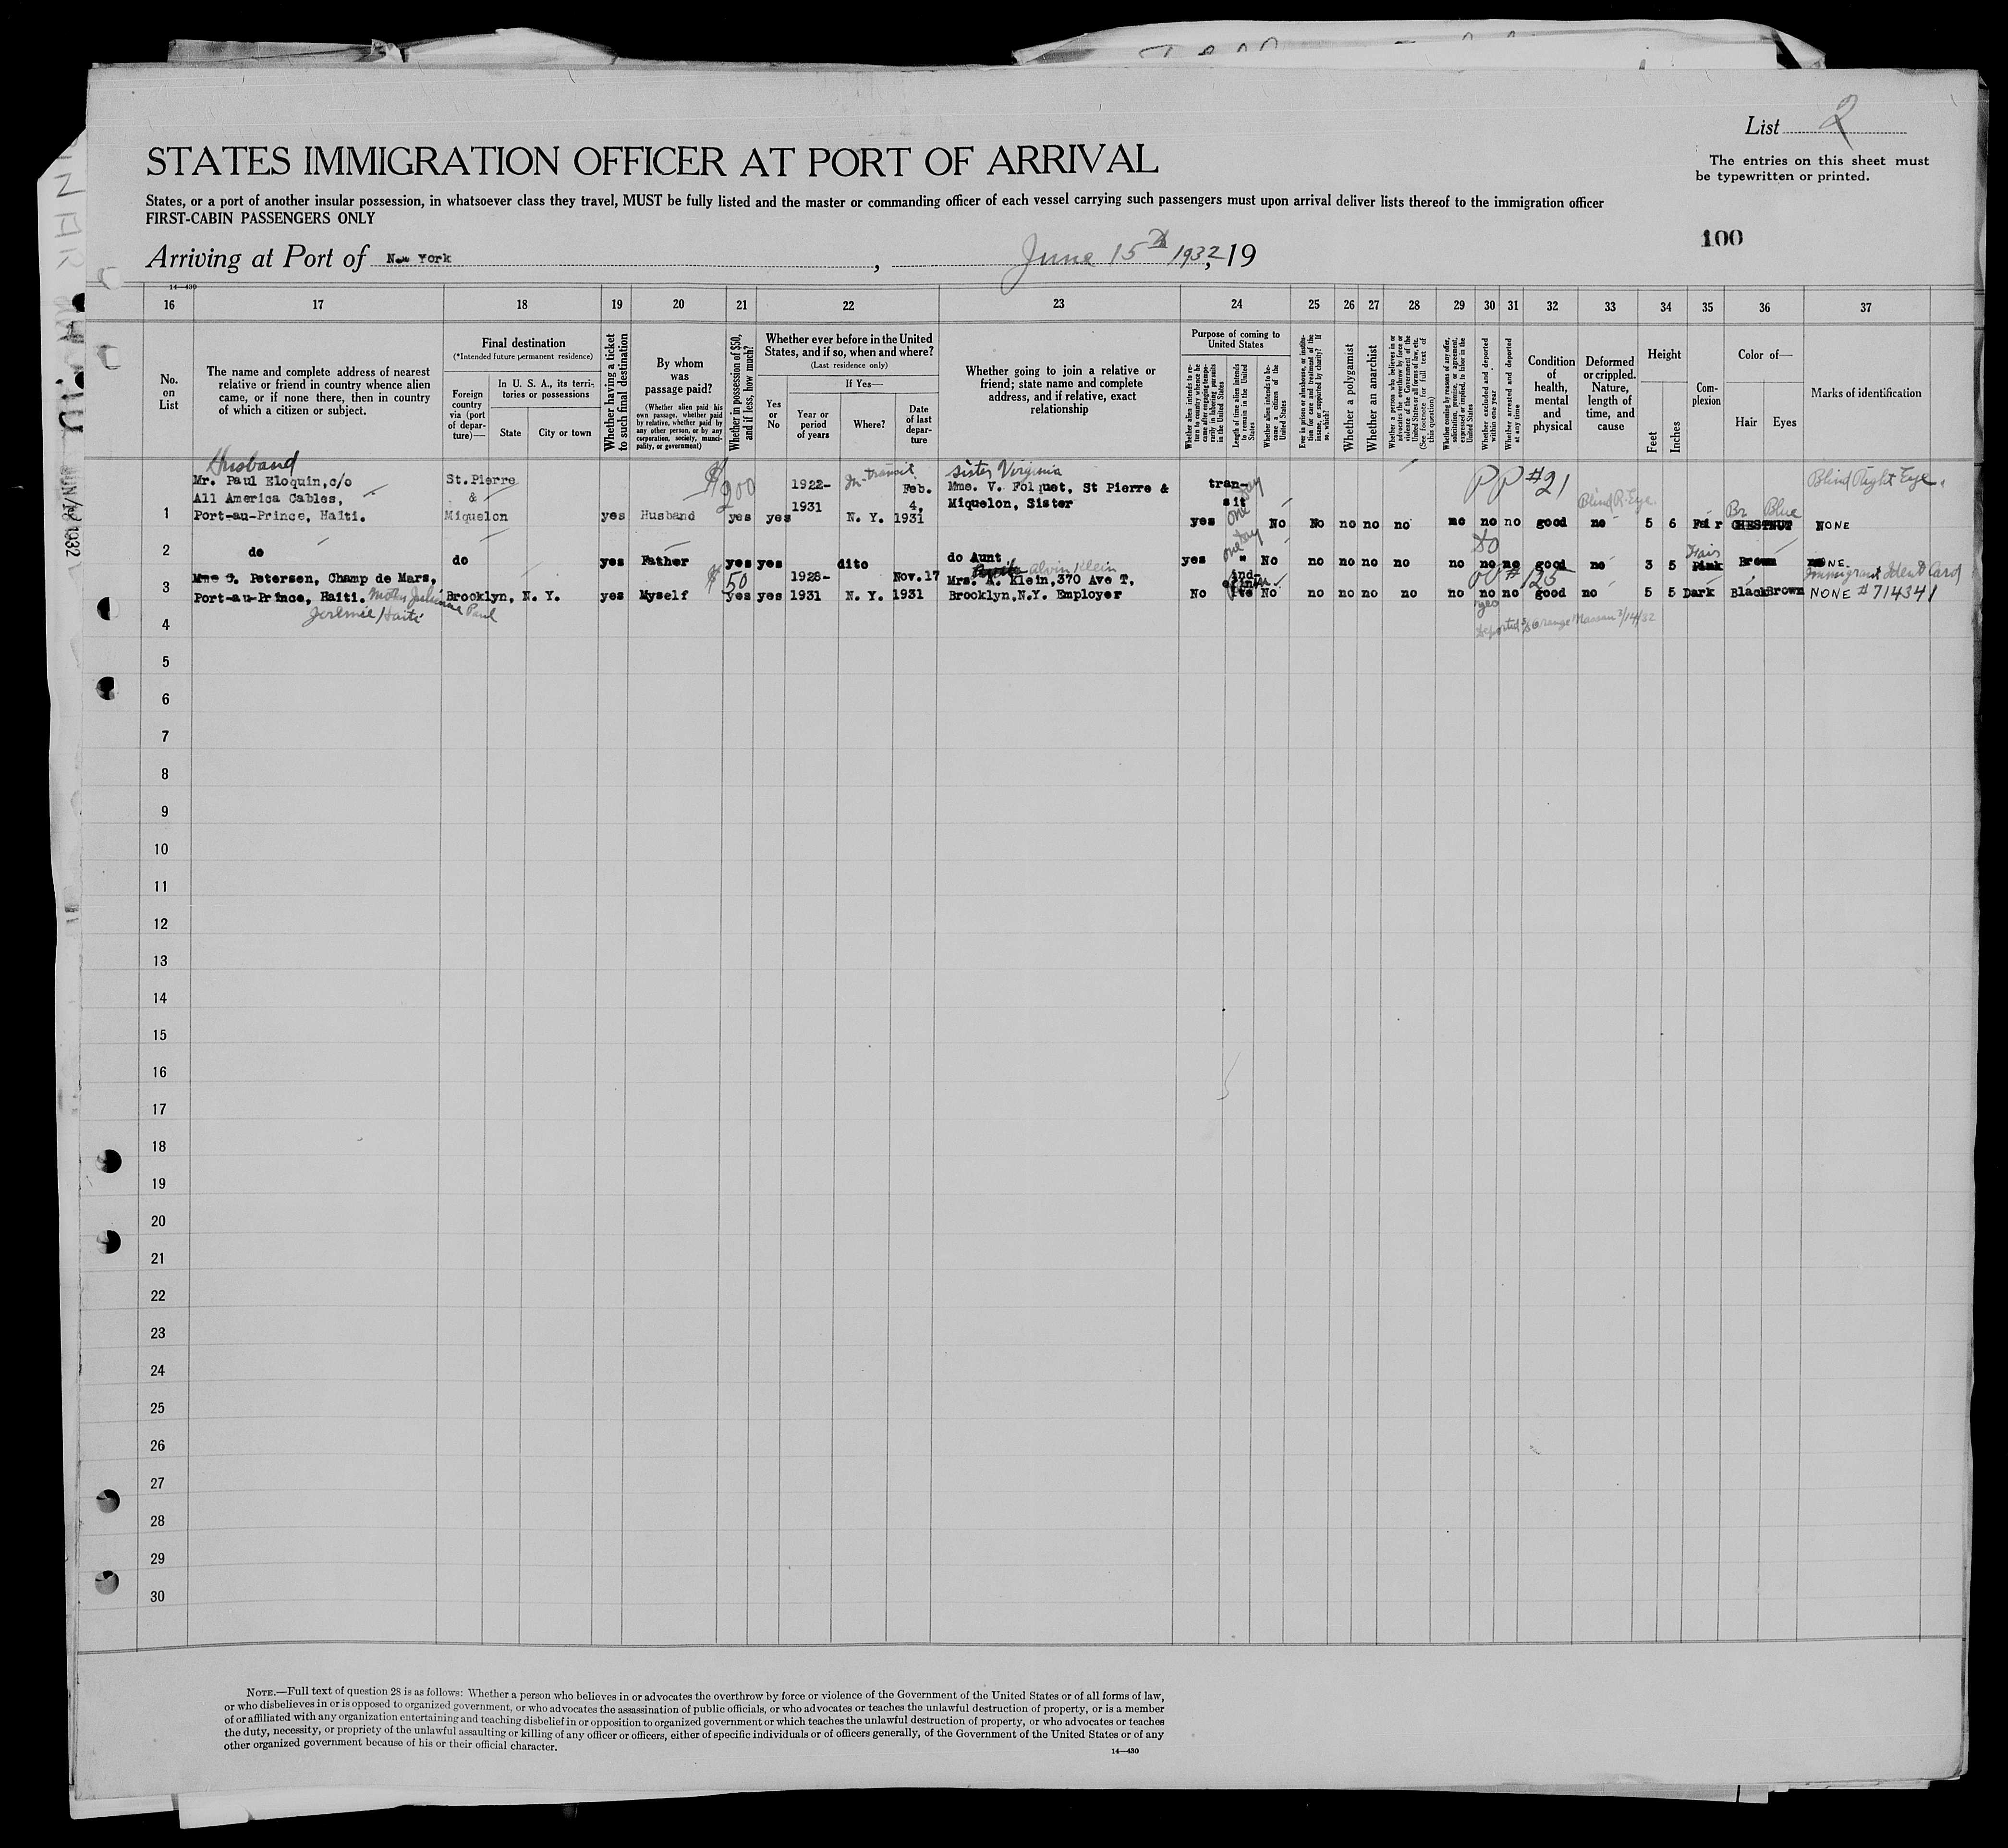 List 2
STATES IMMIGRATION OFFICER AT PORT OF ARRIVAL
The entries on this sheet must
be typewritten or printed.
States, or a port of another insular possession, in whatsoever class they travel, MUST be fully listed and the master or commanding officer of each vessel carrying such passengers must upon arrival deliver lists thereof to the immigration officer
FIRST-CABIN PASSENGERS ONLY
100
Arriving at Port of New York, June 15th 1932, 19
14—430
16 17 18 19 20 21 22 23 24 25 26 27 28 29 30 31 32 33 34 35 36 37
No. on List
The name and complete address of nearest relative or friend in country whence alien came, or if none there, then in country of which a citizen or subject.
Final destination
(*Intended future permanent residence)
Foreign country via (port of departure)—
In U. S. A., its territories or possessions
State
City or town
Whether having a ticket to such final destination
By whom was passage paid?
(Whether alien paid his own passage, whether paid by relative, whether paid by any other person, or by any corporation, society, municipality, or government)
Whether in possession of $50, and if less, how much?
Whether ever before in the United States, and if so, when and where?
(Last residence only)
Yes or No
If Yes—
Year or period of years
Where?
Date of last departure
Whether going to join a relative or friend; state name and complete address, and if relative, exact relationship
Purpose of coming to United States
Whether alien intends to return to country whence he came after engaging temporarily in laboring pursuits in the United States
Length of time alien intends to remain in the United States
Whether alien intends to become a citizen of the United States
Ever in prison or almshouse, or institution for care and treatment of the insane, or supported by charity? If so, which?
Whether a polygamist
Whether an anarchist
Whether a person who believes in or advocates the overthrow by force or violence of the Government of the United States or all forms of law, etc. (See footnote for full text of this question)
Whether coming by reasons of any offer, solicitation, promise, or agreement, expressed or implied, to labor in the United States
Whether excluded and deported within one year
Whether arrested and deported at any time
Condition of health, mental and physical
Deformed or crippled. Nature, length of time, and cause
Height
Feet
Inches
Complexion
Color of—
Hair
Eyes
Marks of identification
Husband
$200 In-transit sister, Virginia PP #21 Blind R. Eye. Blind Right Eye.
Mr. Paul Eloquin, c/o St.Pierre 1922- Feb. Mme. V. Folquet, St Pierre & tran-
All America Cables, & 1931 4, Miquelon, Sister sit one day Br Blue
1 Port-au-Prince, Haiti. Miquelon yes Husband yes yes N. Y. 1931 yes No No no no no no no no good no 5 6 Fair CHESTNUT NONE
do Fair
2 do do yes Father yes yes dito do Aunt yes one day " No no no no no no no no good no 3 5 Pink Brown NONE
$50 Alvin Klein PP #125 Immigrant Ident Card
3 Mme J. Petersen, Champ de Mars, 1928- Nov.17 Mrs. A. Klein,370 Ave T, ind-
Port-au-Prince, Haiti. Brooklyn, N. Y. yes Myself yes yes 1931 N. Y. 1931 Brooklyn,N.Y. Employer No efinite No no no no no no no no good no 5 5 Dark Black Brown NONE #714341
Mother Paul
Jeremie/Haiti
4 yes
Deported SS Orange Nassau 3/14/32
5
6
7
8
9
10
11
12
13
14
15
16
17
18
19
20
21
22
23
24
25
26
27
28
29
30
NOTE.—Full text of question 28 is as follows: Whether a person who believes in or advocates the overthrow by force or violence of the Government of the United States or of all forms of law,
or who disbelieves in or is opposed to organized government, or who advocates the assassination of public officials, or who advocates or teaches the unlawful destruction of property, or is a member
of or affiliated with any organization entertaining and teaching disbelief in or opposition to organized government or which teaches the unlawful destruction of property, or who advocates or teaches
the duty, necessity, or propriety of the unlawful assaulting or killing of any officer or officers, either of specific individuals or of officers generally, of the Government of the United States or of any
other organized government because of his or their official character.
14—430